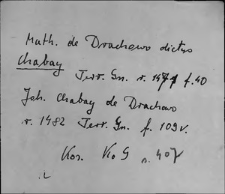 Math. de Drachowo dictus
Chabay
Terr. Gn. r. 1471 f. 40
Joh. Chabay de Drachowo
r. 1482 Terr. Gn. f. 109 v.
Kos. Ko G n. 407